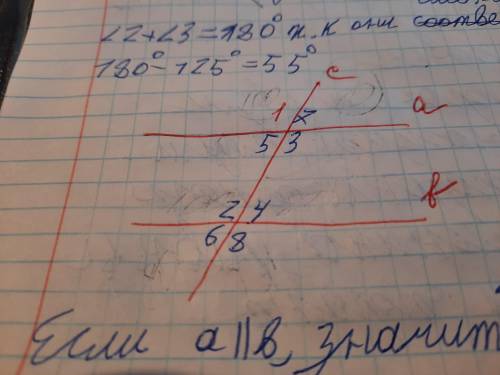 ∠2+∠3=180° т.к они соотве
180°-125°=55°
c
1 7 a
5 3
2 4 в
6 8
Если a||в, значит